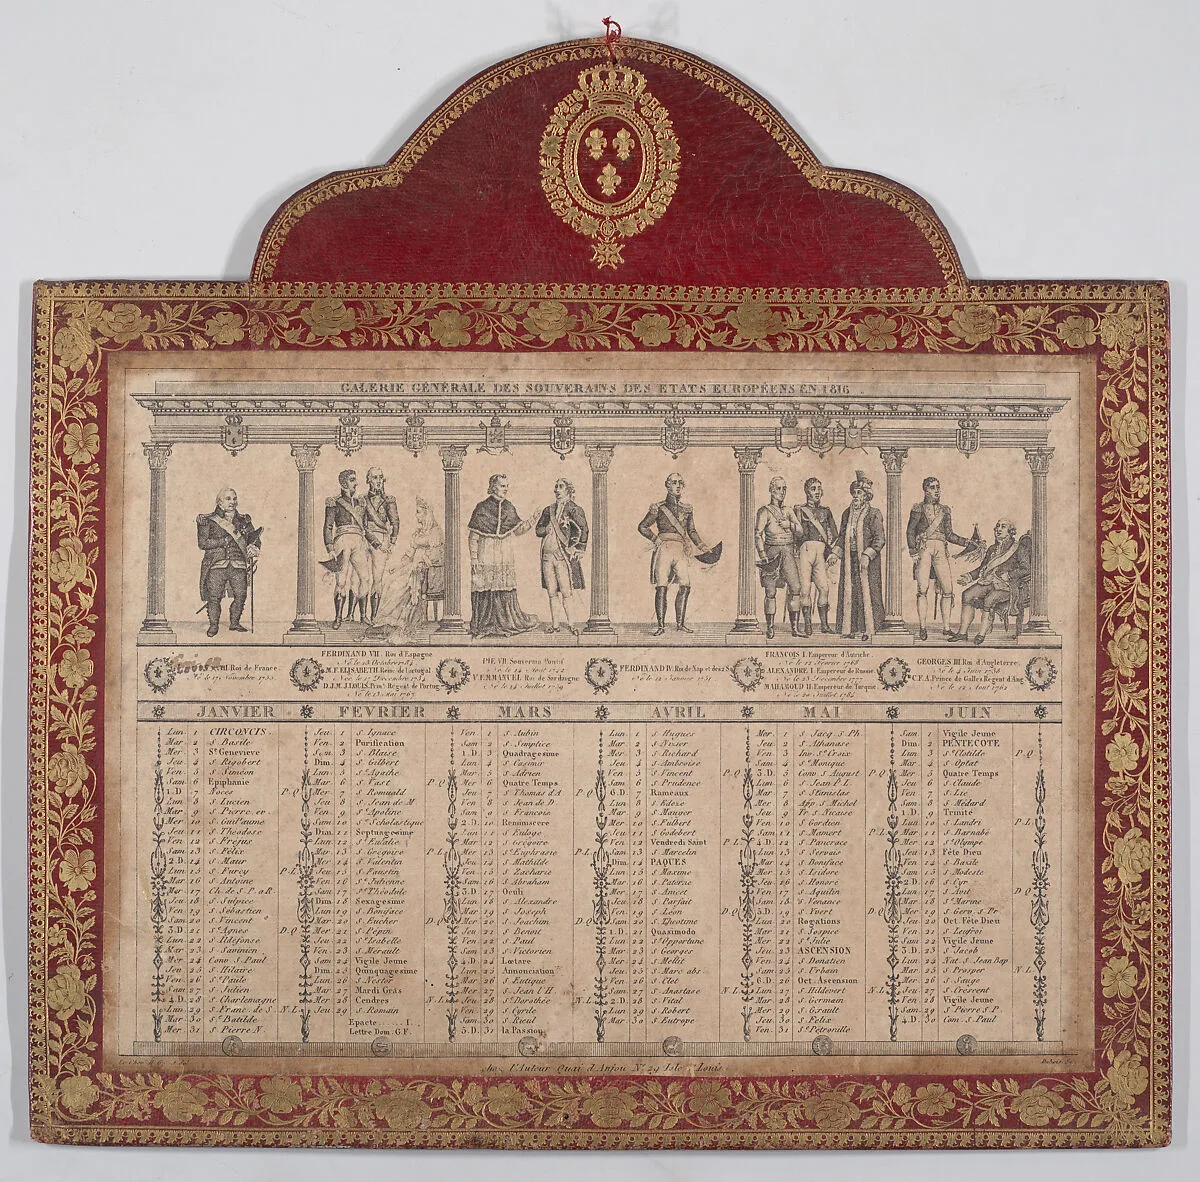 GALERIE GÉNÉRALE DES SOUVERAINS DES ETATS EUROPÉENS EN 1816
XVIII Roi de France
Né le 17 Novembre 1755
FERDINAND VII. Roi d'Espagne
Né le 13 Octobre 1784
M.F. ELISABETH Reine de Portugal
Née le 17 Décembre 1734
D.J.M.J. LOUIS Prin. Régent de Portug.
Né le 13 Mai 1767
PIE VII Souverain Pontif
Né le 14 Août 1742
V. EMMANUEL Roi de Sardaigne
Né le 24 Juillet 1759
FERDINAND IV Roi de Nap. et des 2 S.
Né le 12 Janvier 1751
FRANÇOIS I. Empereur d'Autriche
Né le 12 Février 1768
ALEXANDRE I. Empereur de Russie
Né le 23 Décembre 1777
MAHAMOUD II. Empereur de Turquie
Né le 20 Juillet 1785
GEORGES III Roi d'Angleterre
Né le 4 Juin 1738
C.F.A. Prince de Galles Régent d'Ang.
Né le 12 Août 1762
JANVIER
Lun. 1 CIRCONCIS.
Mar. 2 S. Basile
Mer. 3 Ste Genevieve
Jeu. 4 S. Rigobert
Ven. 5 S. Siméon
Sam. 6 Epiphanie
1.D. 7 Noces P.Q
Lun. 8 S. Lucien
Mar. 9 S. Pierre ev.
Mer. 10 S. Guillaume
Jeu. 11 S. Théodose
Ven. 12 S. Fréjus
Sam. 13 S. Félix
2.D. 14 S. Maur
Lun. 15 S. Furcy P.L
Mar. 16 S. Antoine
Mer. 17 Ch. de S. P. a R.
Jeu. 18 S. Sulpice
Ven. 19 S. Sébastien
Sam. 20 S. Vincent
3.D. 21 Ste Agnès D.Q
Lun. 22 S. Ildefonse
Mar. 23
Mer. 24 Conv. S. Paul
Jeu. 25 S. Hilaire
Ven. 26 Ste Paule
Sam. 27 S. Julien
4.D. 28 S. Charlemagne
Lun. 29 S. Franc. de S. N.L
Mar. 30 Ste Batilde
Mer. 31 S. Pierre N.
FÉVRIER
Jeu. 1 S. Ignace
Ven. 2 Purification
Sam. 3 S. Blaise
Dim. 4 S. Gilbert
Lun. 5 Ste Agathe
Mar. 6 S. Vast P.Q
Mer. 7 S. Romuald
Jeu. 8 S. Jean de M.
Ven. 9 Ste Apoline
Sam. 10 Ste Scholastique
Dim. 11 Septuagesime
Lun. 12 Ste Eulalie
Mar. 13 S. Grégoire P.L
Mer. 14 S. Valentin
Jeu. 15 S. Faustin
Ven. 16 Ste Julienne
Sam. 17 S. Théodule
Dim. 18 Sexagesime
Lun. 19 S. Boniface
Mar. 20 S. Eucher D.Q
Mer. 21 S. Pepin
Jeu. 22 Ste Isabelle
Ven. 23 S. Mérault
Sam. 24 Vigile Jeune
Dim. 25 Quinquagesime
Lun. 26 S. Nestor
Mar. 27 Mardi Gras
Mer. 28 Cendres N.L
Jeu. 29 S. Romain
Epacte ..... I.
Lettre Dom. G.F.
MARS
Ven. 1 S. Aubin
Sam. 2 S. Simplice
1.D. 3 Quadragesime
Lun. 4 S. Casimir
Mar. 5 S. Adrien
Mer. 6 Quatre Temps
Jeu. 7 S. Thomas d'A P.Q
Ven. 8 S. Jean de D.
Sam. 9 S. François
2.D. 10 Reminiscere
Lun. 11 S. Euloge
Mar. 12 S. Grégoire
Mer. 13 Ste Euphrasie P.L
Jeu. 14 S. Mathilde
Ven. 15 S. Zacharie
Sam. 16 S. Abraham
3.D. 17 Oculi
Lun. 18 S. Alexandre
Mar. 19 S. Joseph
Mer. 20 S. Joachim D.Q
Jeu. 21 S. Benoit
Ven. 22 S. Paul
Sam. 23 S. Victorien
4.D. 24 Lætare
Lun. 25 Annonciation
Mar. 26 S. Eutique
Mer. 27 S. Jean l'H.
Jeu. 28 Ste Dorothée N.L
Ven. 29 S. Cyrile
Sam. 30 S. Rieul
5.D. 31 la Passion
AVRIL
Lun. 1 S. Hugues
Mar. 2 S. Nisier
Mer. 3 S. Richard
Jeu. 4 S. Ambroise
Ven. 5 S. Vincent P.Q
Sam. 6 S. Prudence
6.D. 7 Rameaux
Lun. 8 S. Edèse
Mar. 9 S. Mauger
Mer. 10 S. Fulbert
Jeu. 11 S. Godebert
Ven. 12 Vendredi Saint P.L
Sam. 13 S. Marcelin
Dim. 14 PAQUES
Lun. 15 S. Maxime
Mar. 16 S. Paterne
Mer. 17 S. Anicet
Jeu. 18 S. Parfait
Ven. 19 S. Léon D.Q
Sam. 20 S. Théotime
1.D. 21 Quasimodo
Lun. 22 Ste Opportune
Mar. 23 S. Georges
Mer. 24 S. Mellit
Jeu. 25 S. Marc abs.
Ven. 26 S. Clet
Sam. 27 S. Anastase N.L
2.D. 28 S. Vital
Lun. 29 S. Robert
Mar. 30 S. Eutrope
MAI
Mer. 1 S. Jacq. S. Ph.
Jeu. 2 S. Athanase
Ven. 3 Inv. Ste Croix
Sam. 4 Ste Monique
3.D. 5 Conv. S. August P.Q
Lun. 6 S. Jean P.L.
Mar. 7 S. Stanislas
Mer. 8 App. S. Michel
Jeu. 9 Tr. S. Nicaise
Ven. 10 S. Gordien
Sam. 11 S. Mamert P.L
4.D. 12 S. Pancrace
Lun. 13 S. Servais
Mar. 14 S. Boniface
Mer. 15 S. Isidore
Jeu. 16 S. Honoré
Ven. 17 S. Aquilin
Sam. 18 S. Venance
5.D. 19 S. Yvert D.Q
Lun. 20 Rogations
Mar. 21 S. Hospice
Mer. 22 Ste Julie
Jeu. 23 ASCENSION
Ven. 24 S. Donatien
Sam. 25 S. Urbain
6.D. 26 Oct. Ascension
Lun. 27 S. Hildevert N.L
Mar. 28 S. Germain
Mer. 29 S. Grault
Jeu. 30 S. Félix
Ven. 31 Ste Pétronille
JUIN
Sam. 1 Vigile Jeune
Dim. 2 PENTECOTE
Lun. 3 Ste Clotilde P.Q
Mar. 4 S. Optat
Mer. 5 Quatre Temps
Jeu. 6 S. Claude
Ven. 7 S. Lié
Sam. 8 S. Médard
1.D. 9 Trinité
Lun. 10 S. Landri P.L
Mar. 11 S. Barnabé
Mer. 12 Ste Olympe
Jeu. 13 Fête Dieu
Ven. 14 S. Bazile
Sam. 15 S. Modeste
2.D. 16 S. Cyr
Lun. 17 S. Avit D.Q
Mar. 18 Ste Marine
Mer. 19 S. Gerv. S. Pr
Jeu. 20 Oct. Fête Dieu
Ven. 21 S. Leufroi
Sam. 22 Vigile Jeune
3.D. 23 S. Jacob
Lun. 24 Nat. S. Jean Bap
Mar. 25 S. Prosper N.L
Mer. 26 S. Sauge
Jeu. 27 S. Crescent
Ven. 28 Vigile Jeune
Sam. 29 S. Pierre S. P.
4.D. 30 Com. S. Paul
chez l'Auteur Quai d'Anjou No. 29 Isle St Louis.